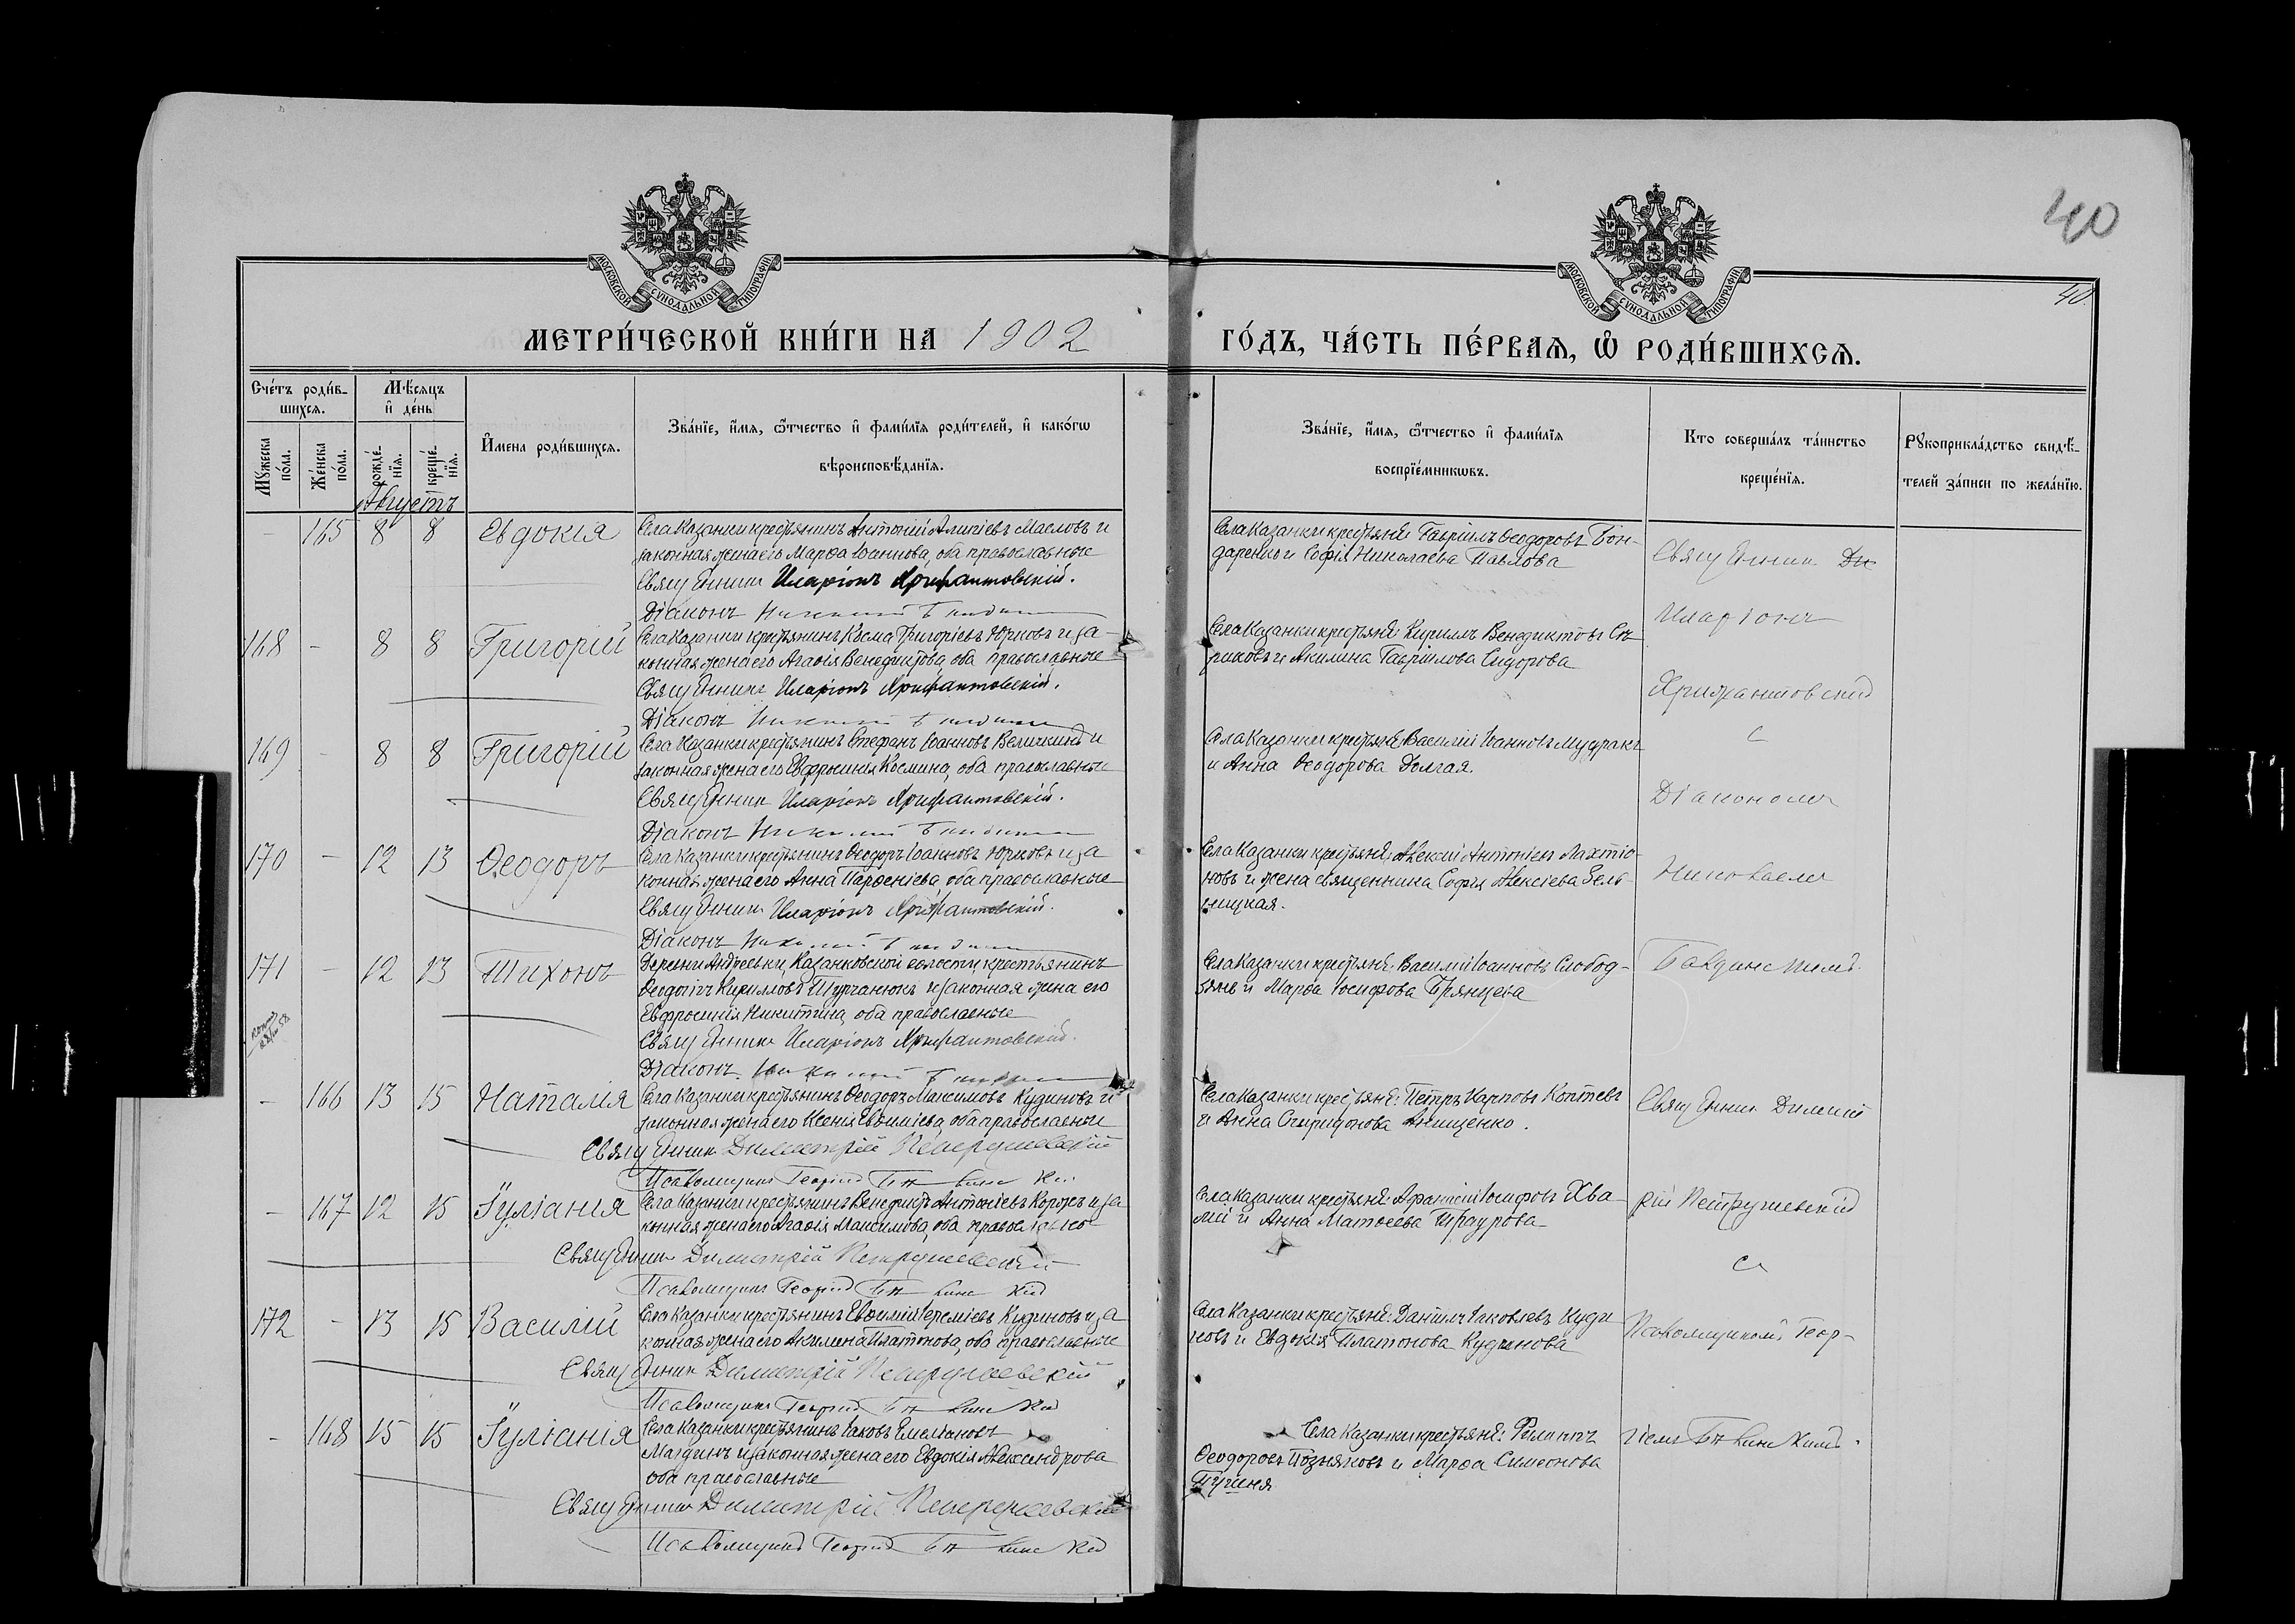 40
40.
МОСКОВСКОЙ СѴНОДАЛЬНОЙ ТИПОГРАФІИ
МОСКОВСКОЙ СѴНОДАЛЬНОЙ ТИПОГРАФІИ
МЕТРИ́ЧЕСКОЙ КНИ́ГИ НА 1902
ГО́ДЪ, ЧА́СТЬ ПЕ́РВАѦ, Ѡ҆ РОДИ́ВШИХСѦ.
Сче́тъ роди́в-
шихсѧ.
Мѣ́сѧцъ
и҆ де́нь
Мꙋ́жеска
по́ла.
Же́нска
по́ла.
рожде́-
нїѧ.
креще́-
нїѧ.
И҆мена роди́вшихсѧ.
Зва́нїе, и҆́мѧ, ѻ҆́тчество и҆ фами́лїѧ роди́телей, и҆ како́гѡ
вѣроисповѣ́данїѧ.
Зва́нїе, и҆́мѧ, ѻ҆́тчество и҆ фами́лїѧ
воспрїе́мникѡвъ.
Кто соверша́лъ та́инство
креще́нїѧ.
Рꙋкоприкла́дство свидѣ́-
телей за́писи по жела́нїю.
Августъ
- 165 8 8 Евдокія
Села Казанки крестьянинъ Антоній Масловъ и
законная жена его Марѳа Іоаннова, оба православные
Священникъ Иларіонъ Хрисантовскій.
Діаконъ
Села Казанки крестьяне: Гавріилъ Ѳеодоровъ Бон-
даренко и Софія Николаева Павлова
Священник
Иларіонъ
Хрисантовскій
с
Діакономъ
Николаемъ
168 - 8 8 Григорій
Села Казанки крестьянинъ Косма Григоріевъ Юрковъ и за-
конная жена его Агаѳія Венедиктова, оба православные
Священникъ Иларіонъ Хрисантовскій.
Діаконъ
Села Казанки крестьяне: Кириллъ Венедиктовъ
и Акилина Гавріилова Сидорова
169 - 8 8 Григорій
Села Казанки крестьянинъ Стефанъ Іоанновъ Величкинъ и
законная жена его Евфросинія Космина, оба православные
Священник Иларіонъ Хрисантовскій.
Діаконъ
Села Казанки крестьяне: Василій Іоанновъ Мудракъ
и Анна Ѳеодорова Долгая.
170 - 12 13 Ѳеодоръ
Села Казанки крестьянинъ Ѳеодоръ Іоанновъ Юрковъ и за
конная жена его Анна Парѳеніева, оба православные
Священник Иларіонъ Хрисантовскій.
Діаконъ
Села Казанки крестьяне: Алексій Антоніевъ Лахтіо-
новъ и жена священника Софія Алексіева Бель-
ницкая.
171 - 12 13 Тихонъ
Деревни Андреевки, Казанковской волости, крестьянинъ
Ѳеодосій Кирилловъ и законная жена его
Евфросинія Никитина, оба православные
Священник Иларіонъ Хрисантовскій.
Діаконъ
Села Казанки крестьяне: Василій Іоанновъ Слобод-
и Марѳа Іосифова Брянцева
- 166 13 15 Наталія
Села Казанки крестьянинъ Ѳеодоръ Максимовъ Кудиновъ и
законная жена его Ксенія Евѳиміева, оба православные
Священник Димитрій Петрушевскій
Псаломщикъ Георгій
Села Казанки крестьяне: Петръ Карповъ Коптевъ
и Анна Спиридонова Анищенко.
Священник Димит
рій Петрушевскій
с
Псаломщикомъ Геор-
гіемъ
- 167 12 15 Іуліанія
Села Казанки крестьянинъ Венедиктъ Антоніевъ и за
конная жена его Агаѳія Максимова, оба православные
Священник Димитрій Петрушевскій
Псаломщикъ Георгій
Села Казанки крестьяне: Аѳанасій Іосифовъ Хва-
лій и Анна Матѳеева
172 - 13 15 Василій
Села Казанки крестьянинъ Евфимій Іереміевъ Кудиновъ и за
конная жена его Акилина Платонова, оба православные
Священник Димитрій Петрушевскій
Псаломщикъ Георгій
Села Казанки крестьяне: Даніилъ Іаковлевъ Куди
новъ и Евдокія Платонова Кудинова
- 168 15 15 Іуліанія
Села Казанки крестьянинъ Іаковъ Емеліановъ
и законная жена его Евдокія Александрова
оба православные
Священник Димитрій Петрушевскій
Псаломщикъ Георгій
Села Казанки крестьяне: Филиппъ
Ѳеодоровъ Позняковъ и Марѳа Симеонова